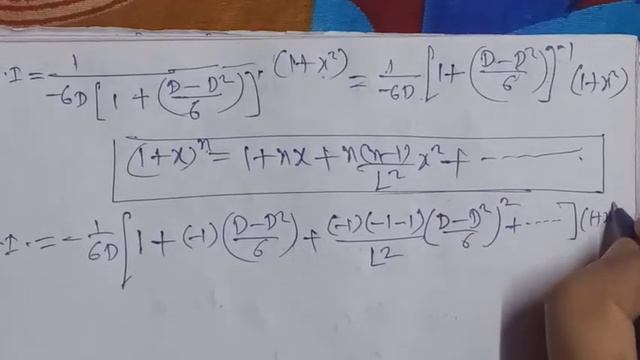 .I = 1/-6D[1 + (D-D²/6)] (1+x²) = 1/-6D [1 + (D-D²/6)]⁻¹ (1+x²)
(1+x)ⁿ = 1+nx+ n(n-1)/L2 x² + -------
.I. = -1/6D [1 + (-1)(D-D²/6) + (-1)(-1-1)/L2 (D-D²/6)² + -----] (1+x